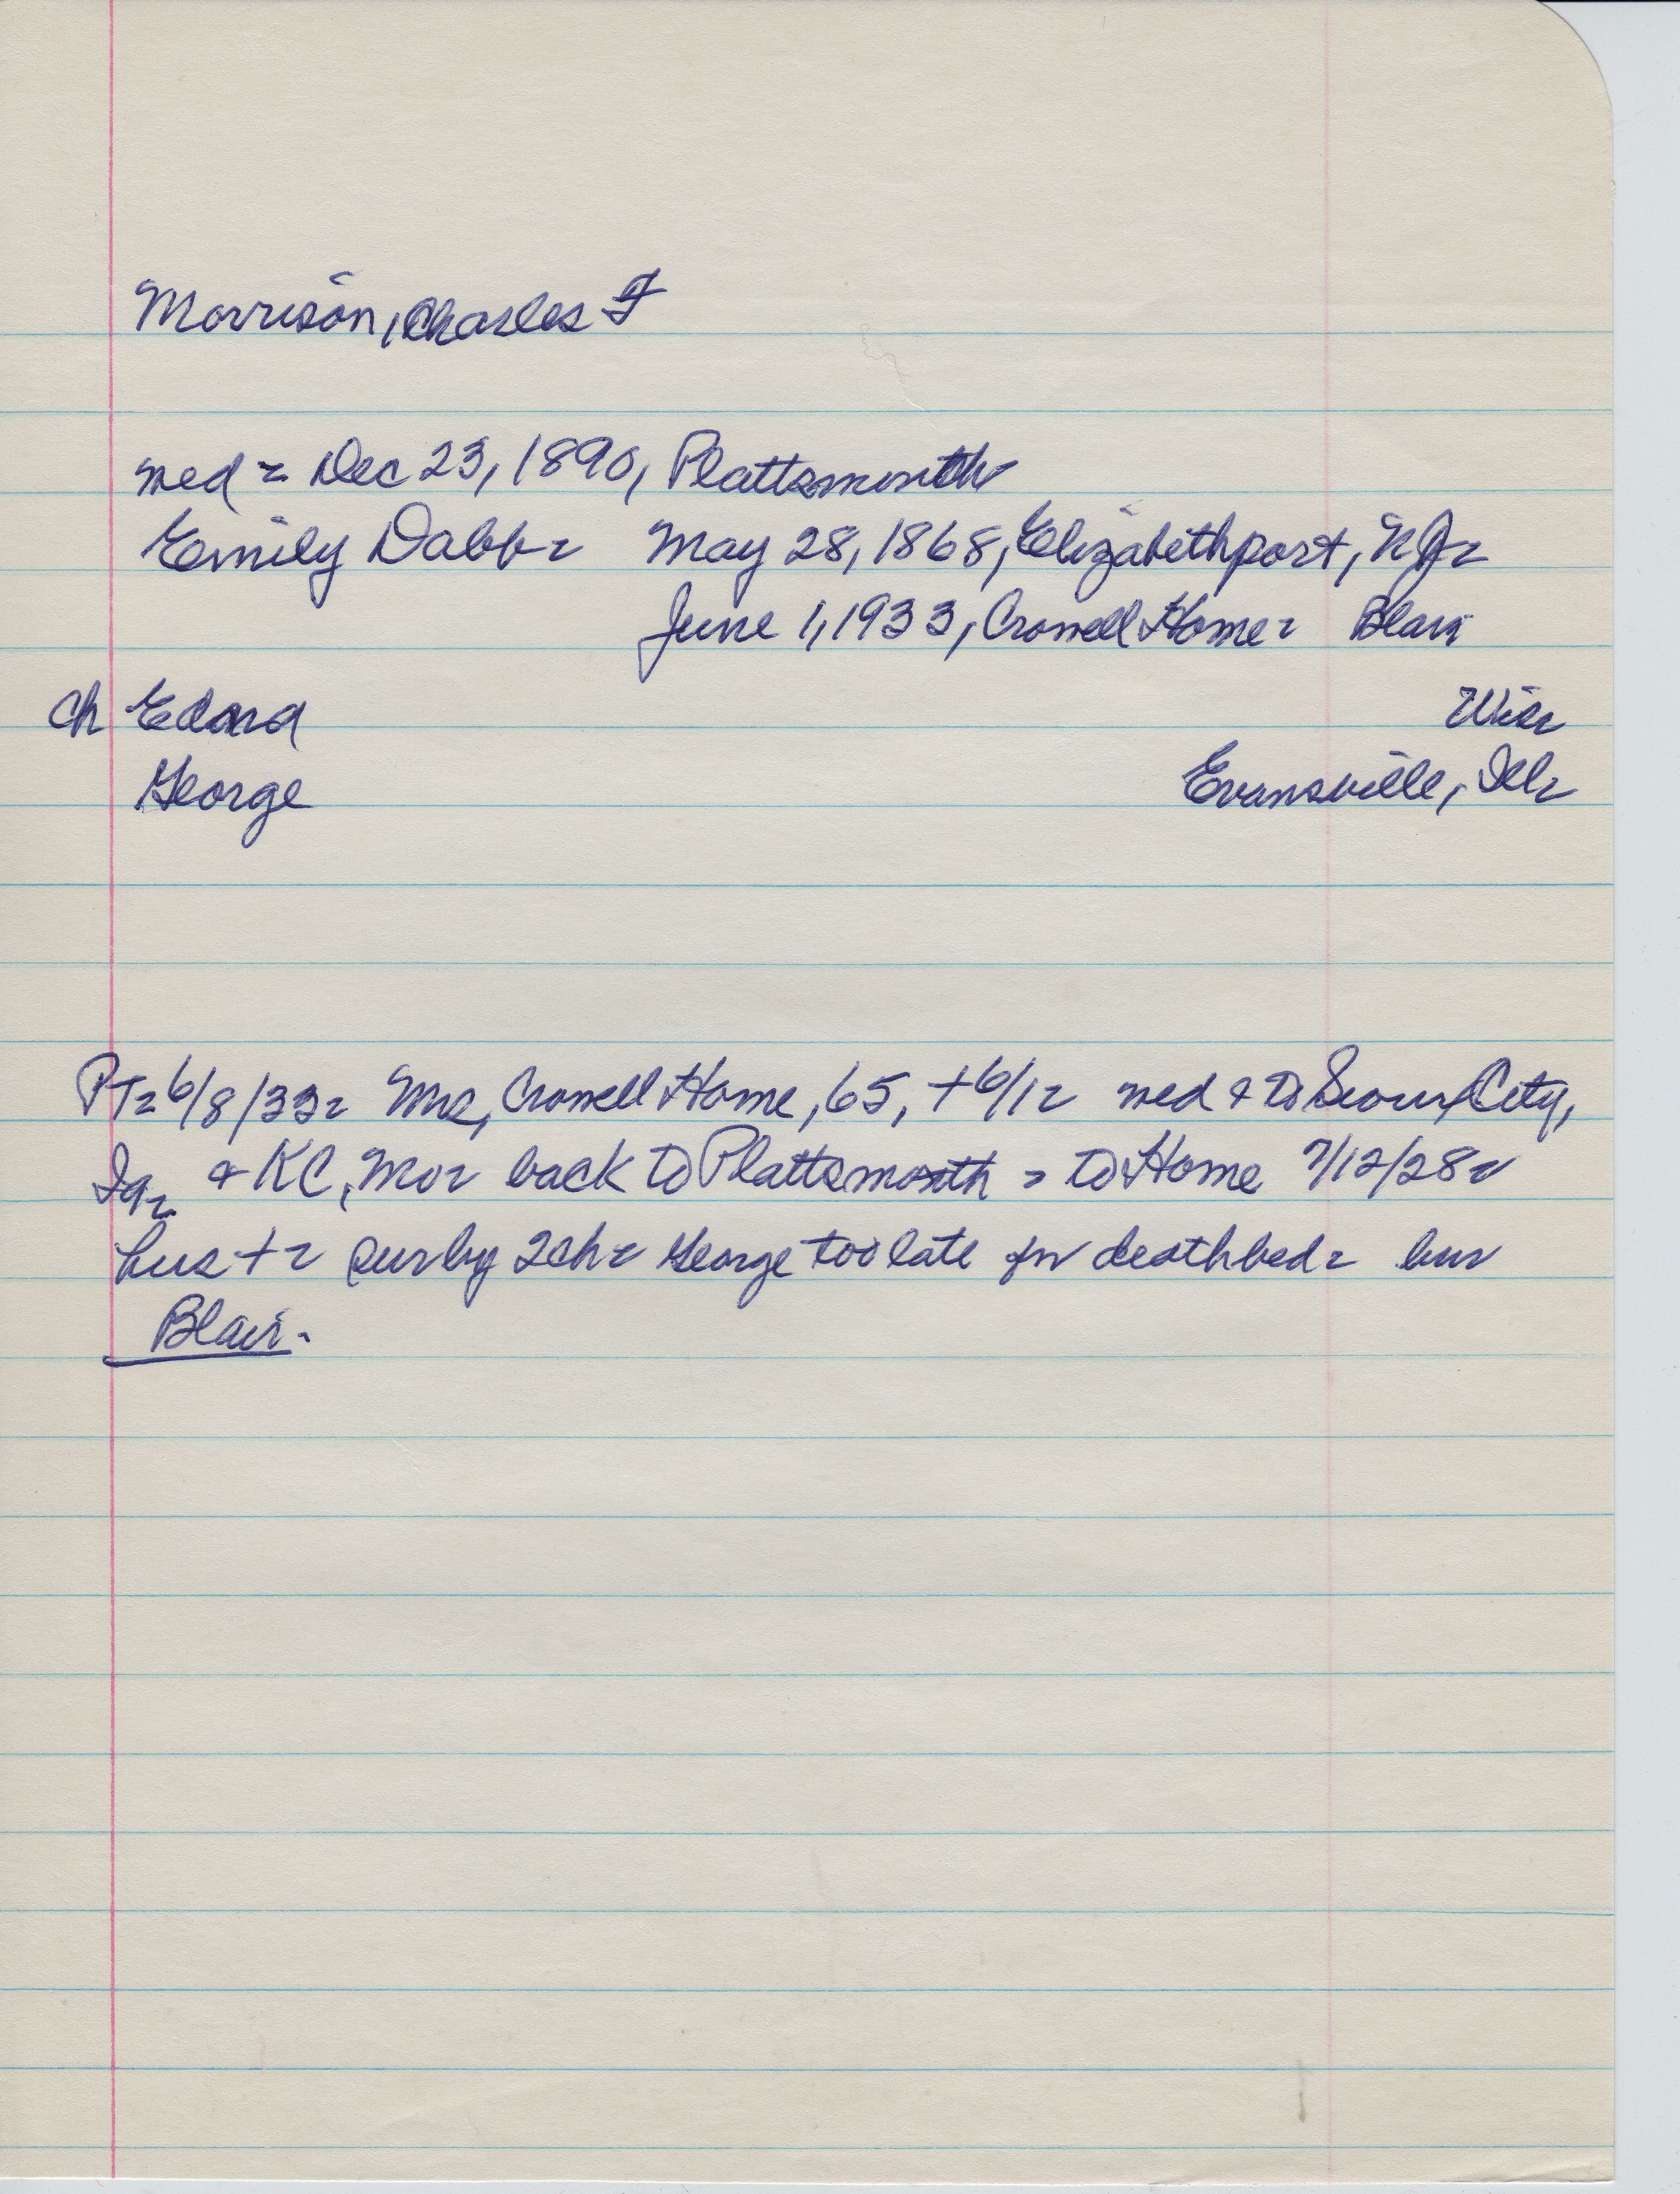 Morrison, Charles F
med - Dec 23, 1890, Plattsmouth
Emily Dabb - May 28, 1868, Elizabethport, NJ -
June 1, 1933, Crowell Home - Blair
ch Edard Wis -
George Evansville, Ill -
PT - 6/8/33 - Mrs, Crowell Home, 65, + 6/1 - med & to Sioux City,
Ia - & KC, Mo - back to Plattsmouth - to Home 7/12/28 -
hus + - sur by 2 ch - George too late for deathbed - bur
Blair.